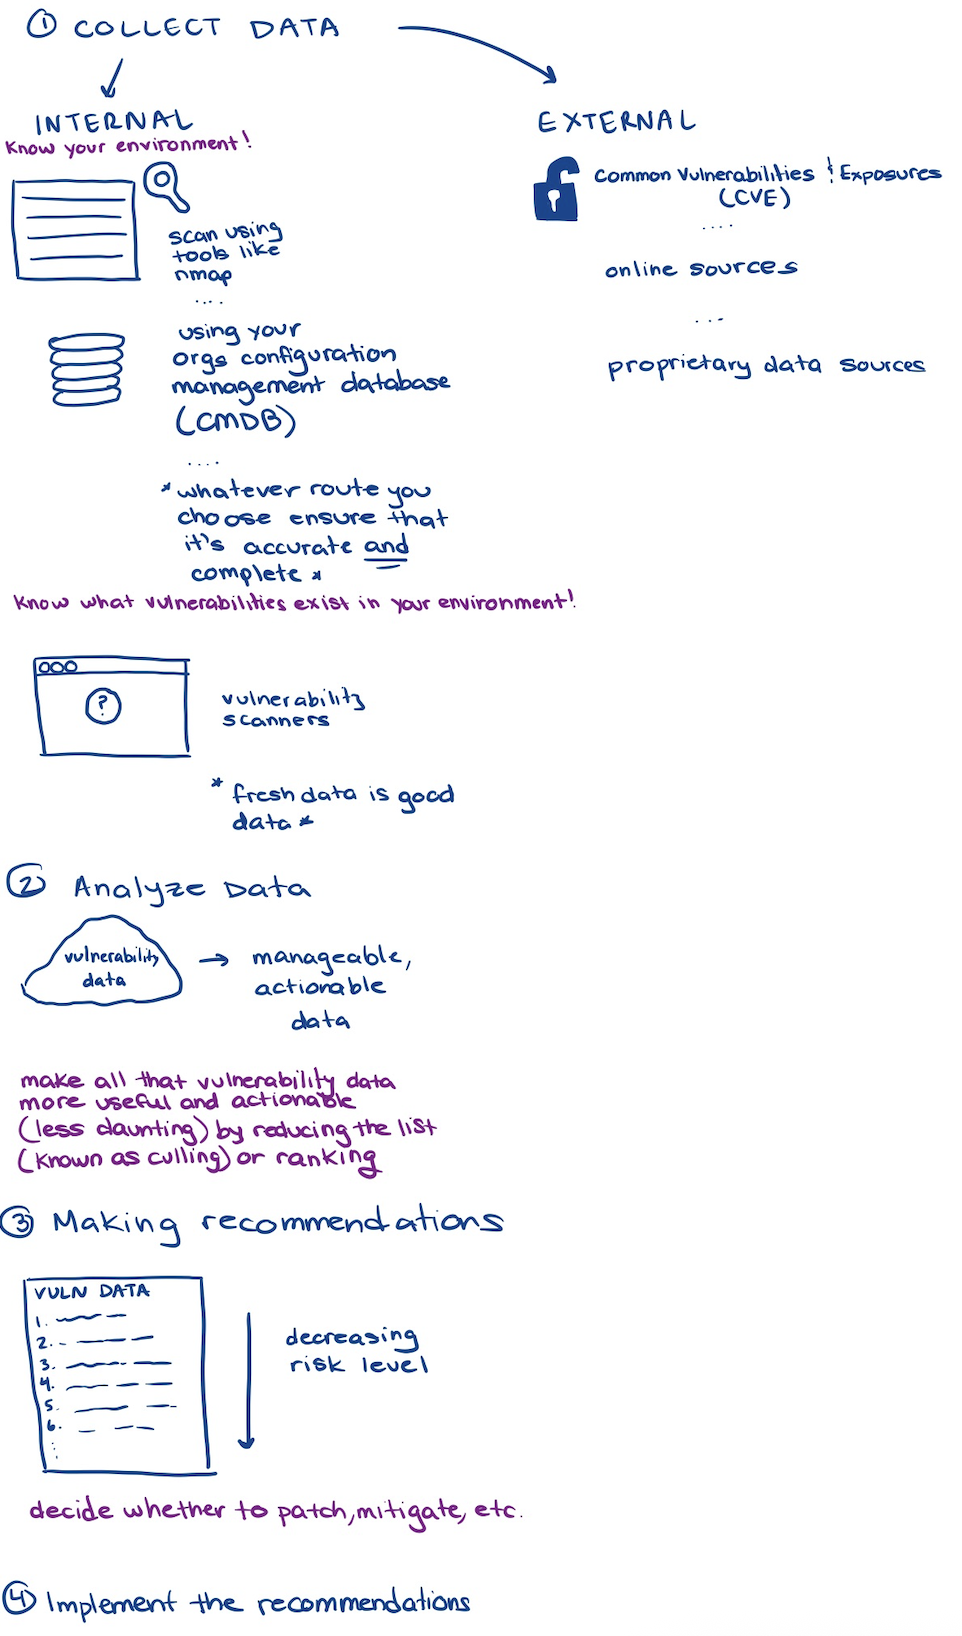 ① COLLECT DATA
INTERNAL
Know your environment!
scan using
tools like
nmap
....
using your
orgs configuration
management database
(CMDB)
....
*whatever route you
choose ensure that
it's accurate and
complete *
Know what vulnerabilities exist in your environment!
?
vulnerability
scanners
* fresh data is good
data *
EXTERNAL
Common Vulnerabilities & Exposures
(CVE)
....
online sources
...
proprietary data sources
② Analyze Data
vulnerability
data
→ manageable,
actionable
data
make all that vulnerability data
more useful and actionable
(less daunting) by reducing the list
(known as culling) or ranking
③ Making recommendations
VULN DATA
1.
2.
3.
4.
5.
6.
decreasing
risk level
decide whether to patch, mitigate, etc.
④ Implement the recommendations